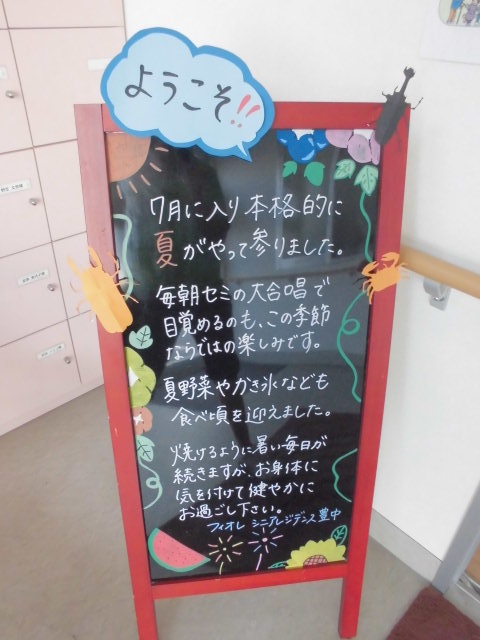 ようこそ!!
7月に入り本格的に
夏がやって参りました。
毎朝セミの大合唱で
目覚めるのも、この季節
ならではの楽しみです。
夏野菜やかき氷なども
食べ頃を迎えました。
焼けるように暑い毎日が
続きますが、お身体に
気を付けて健やかに
お過ごし下さい。
フィオレ シニアレジデンス豊中